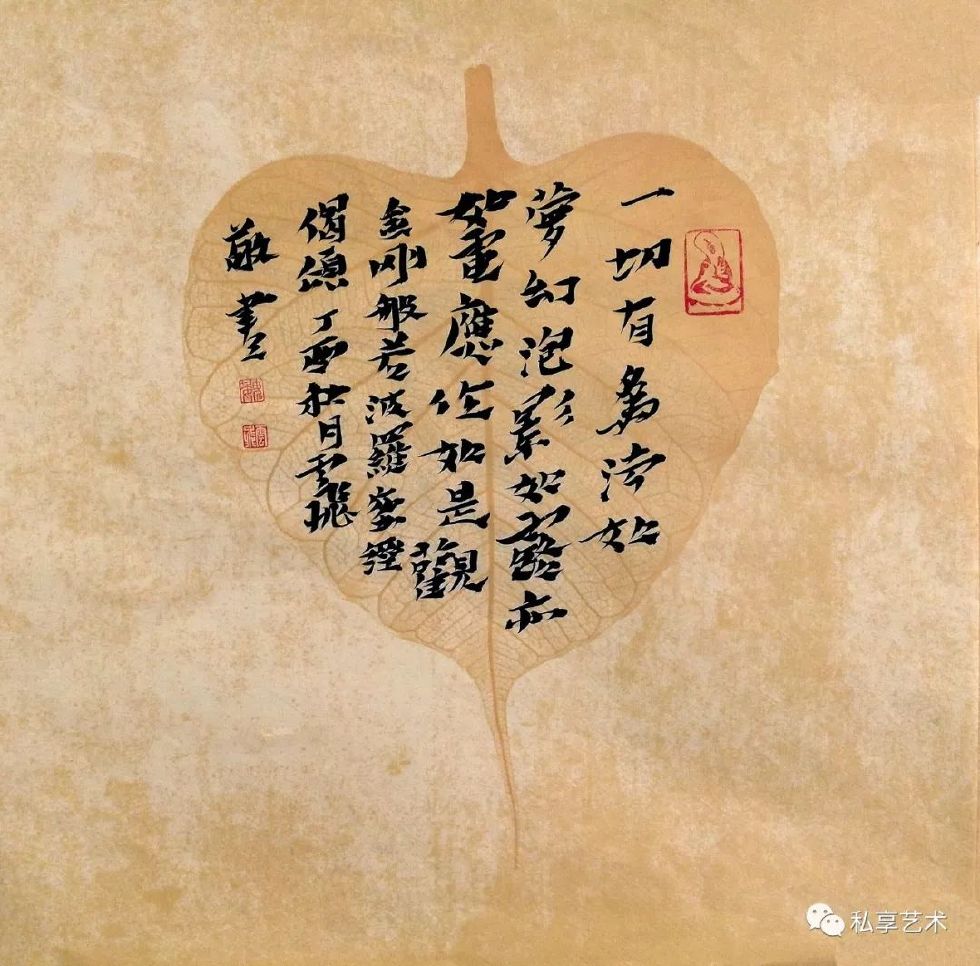 一切有為法如
夢幻泡影如露亦
如電應作如是觀
金剛般若波羅蜜經
偈頌丁酉秋月雲飛
敬書
私享艺术